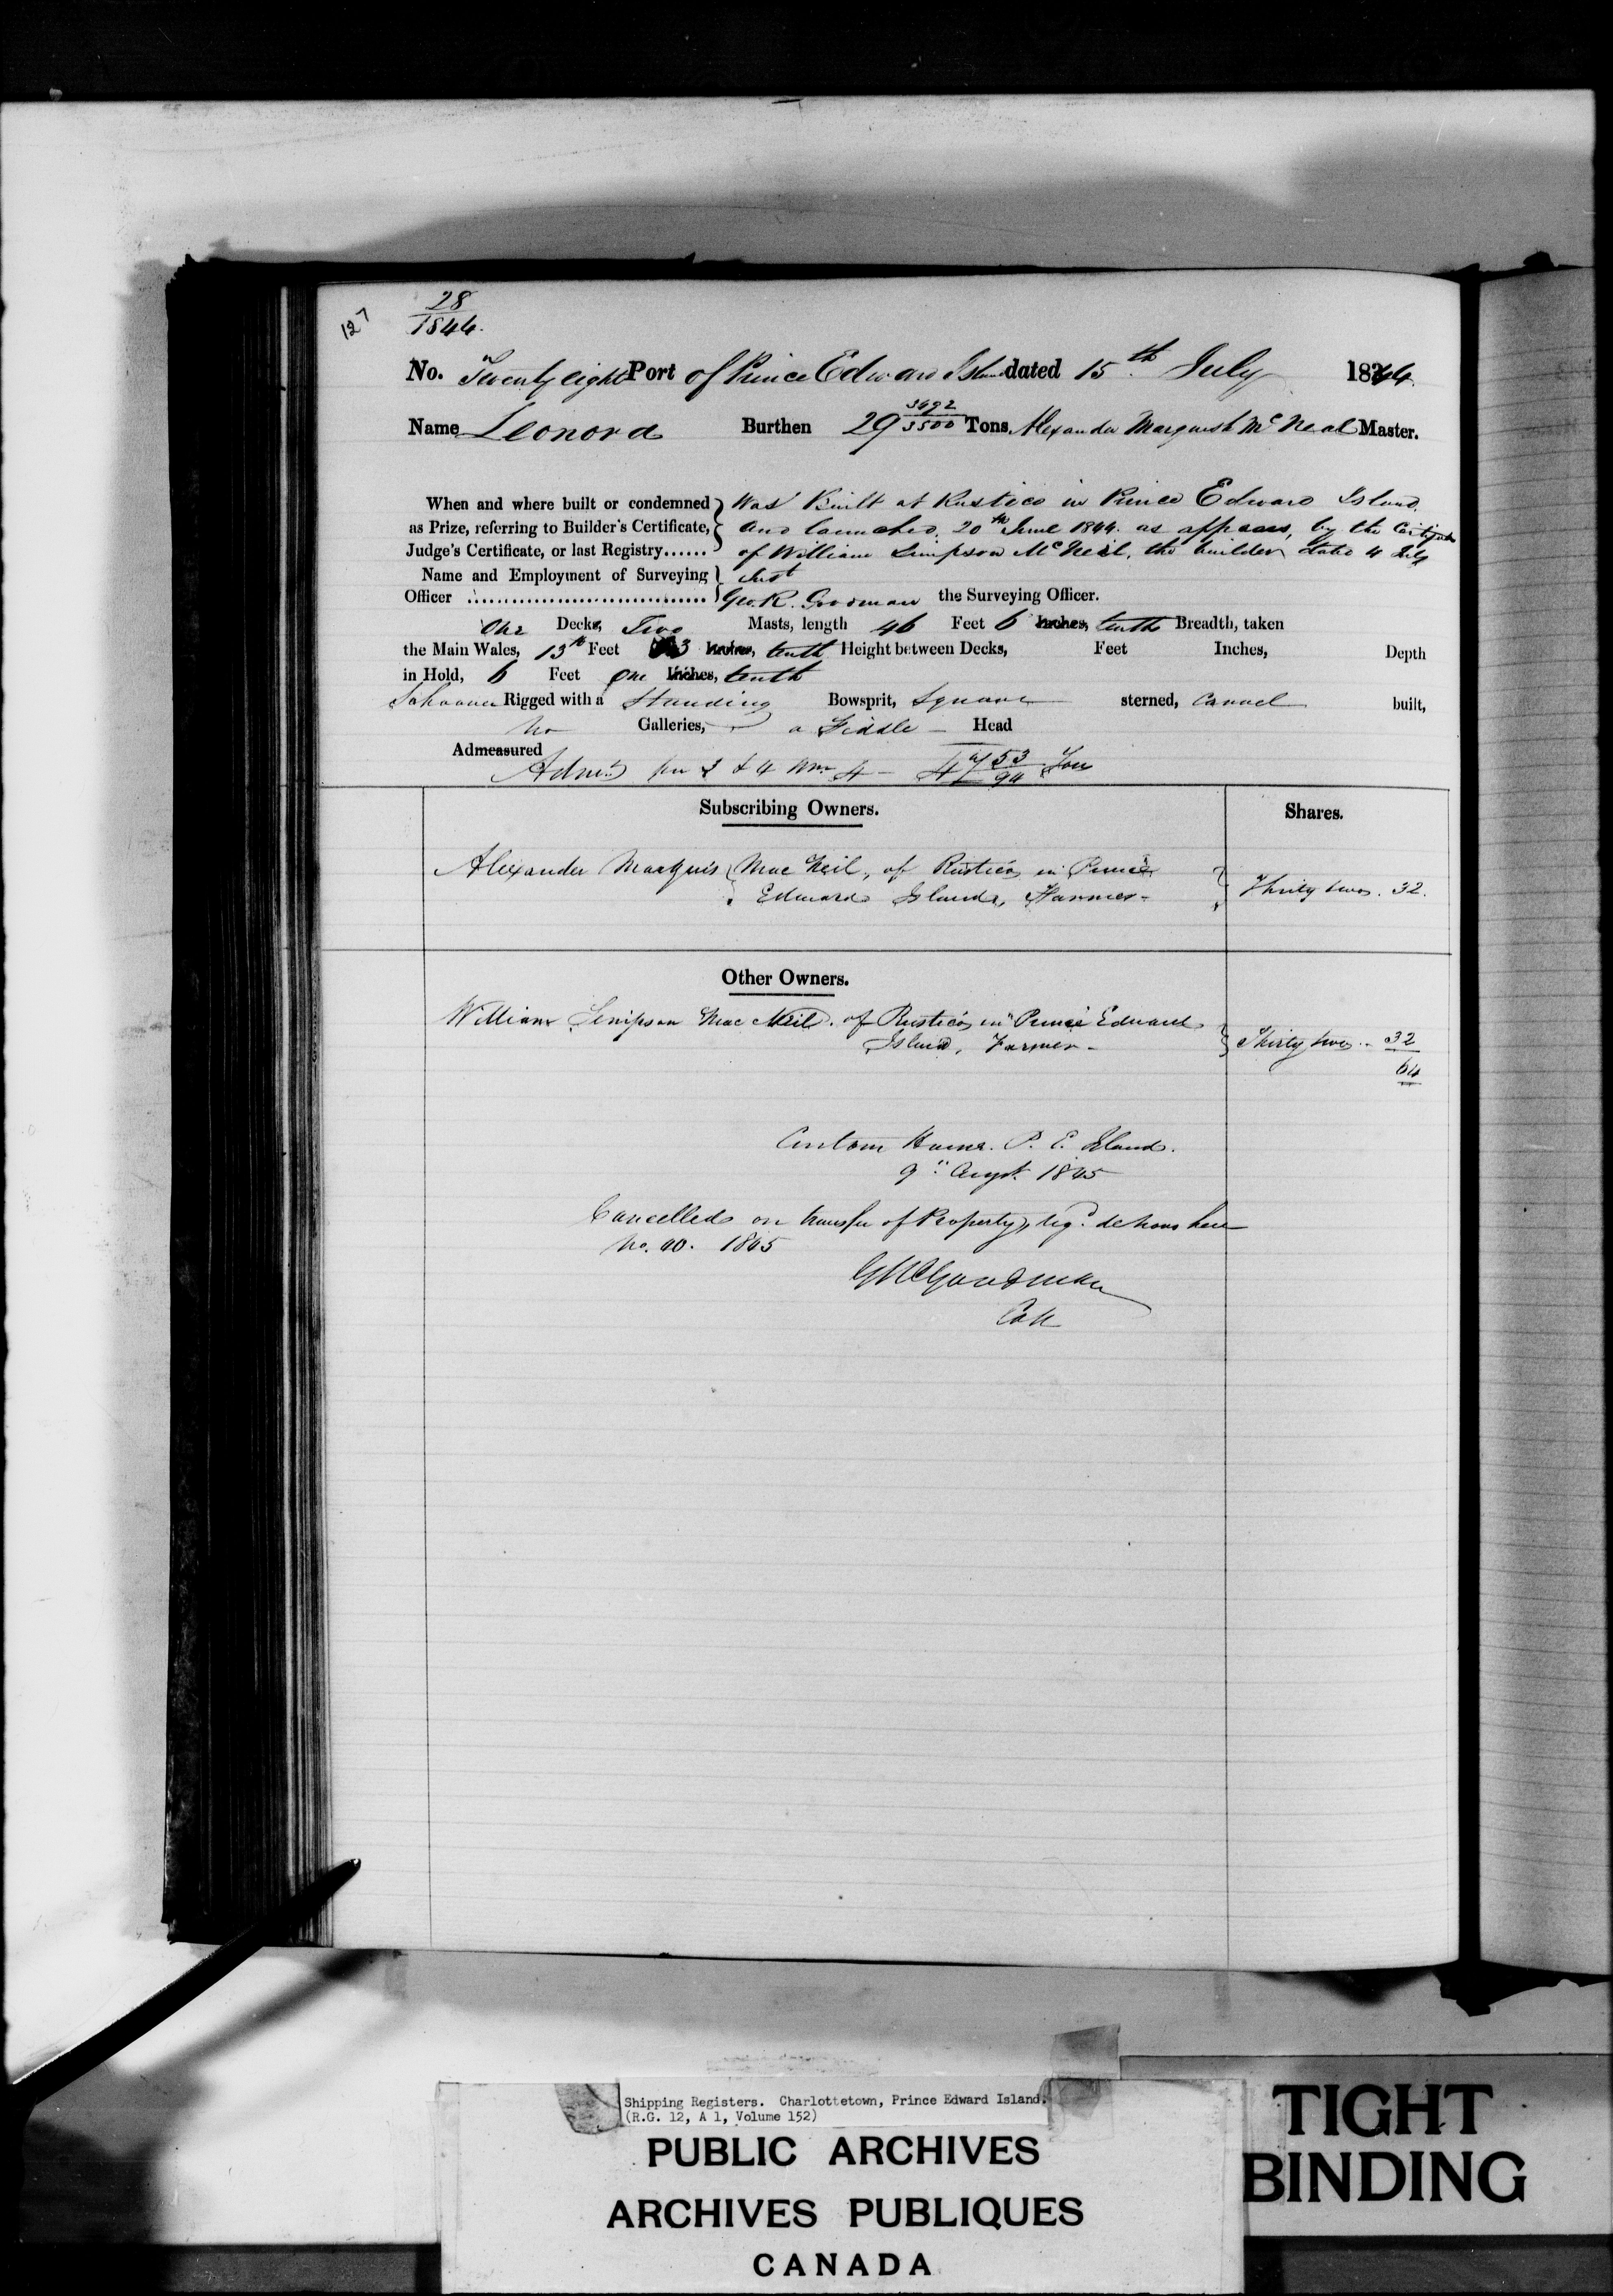 127
28
1844.
No. Twenty eight Port of Prince Edward Island dated 15th July 1844.
Name Leonora Burthen 29 3492/3500 Tons, Alexander Marquish McNeal Master.
When and where built or condemned Was Built at Rustico in Prince Edward Island,
as Prize, referring to Builder's Certificate, and launched 20th June 1844. as appears, by the Certificate
Judge's Certificate, or last Registry...... of William Simpson McNeil, the builder date 4 July
Name and Employment of Surveying
Officer ................................ Geo. R. Goodman the Surveying Officer.
One Decks, Two Masts, length 46 Feet 6 Inches, tenths Breadth, taken
the Main Wales, 13 Feet 3 Inches, tenth Height between Decks, Feet Inches, Depth
in Hold, 6 Feet One Inches, tenth
Schooner Rigged with a Standing Bowsprit, Square sterned, Carvel built,
No Galleries, a Fiddle Head
Admeasured
53/94 Tons
Subscribing Owners. Shares.
Alexander Marquis Mac Neil, of Rustico, in Prince
Edward Island, Farmer - Thirty two . 32.
Other Owners.
William Simpson Mac Neil. of Rustico, in Prince Edward
Island, Farmer - Thirty two .. 32
64
Custom House. P. E. Island.
9th Augst. 1845
Cancelled on transfer of Property, reg.d de novo here
No. 40. 1845
GR Goodman
Coll
Shipping Registers. Charlottetown, Prince Edward Island.
(R.G. 12, A 1, Volume 152)
PUBLIC ARCHIVES
ARCHIVES PUBLIQUES
CANADA
TIGHT
BINDING